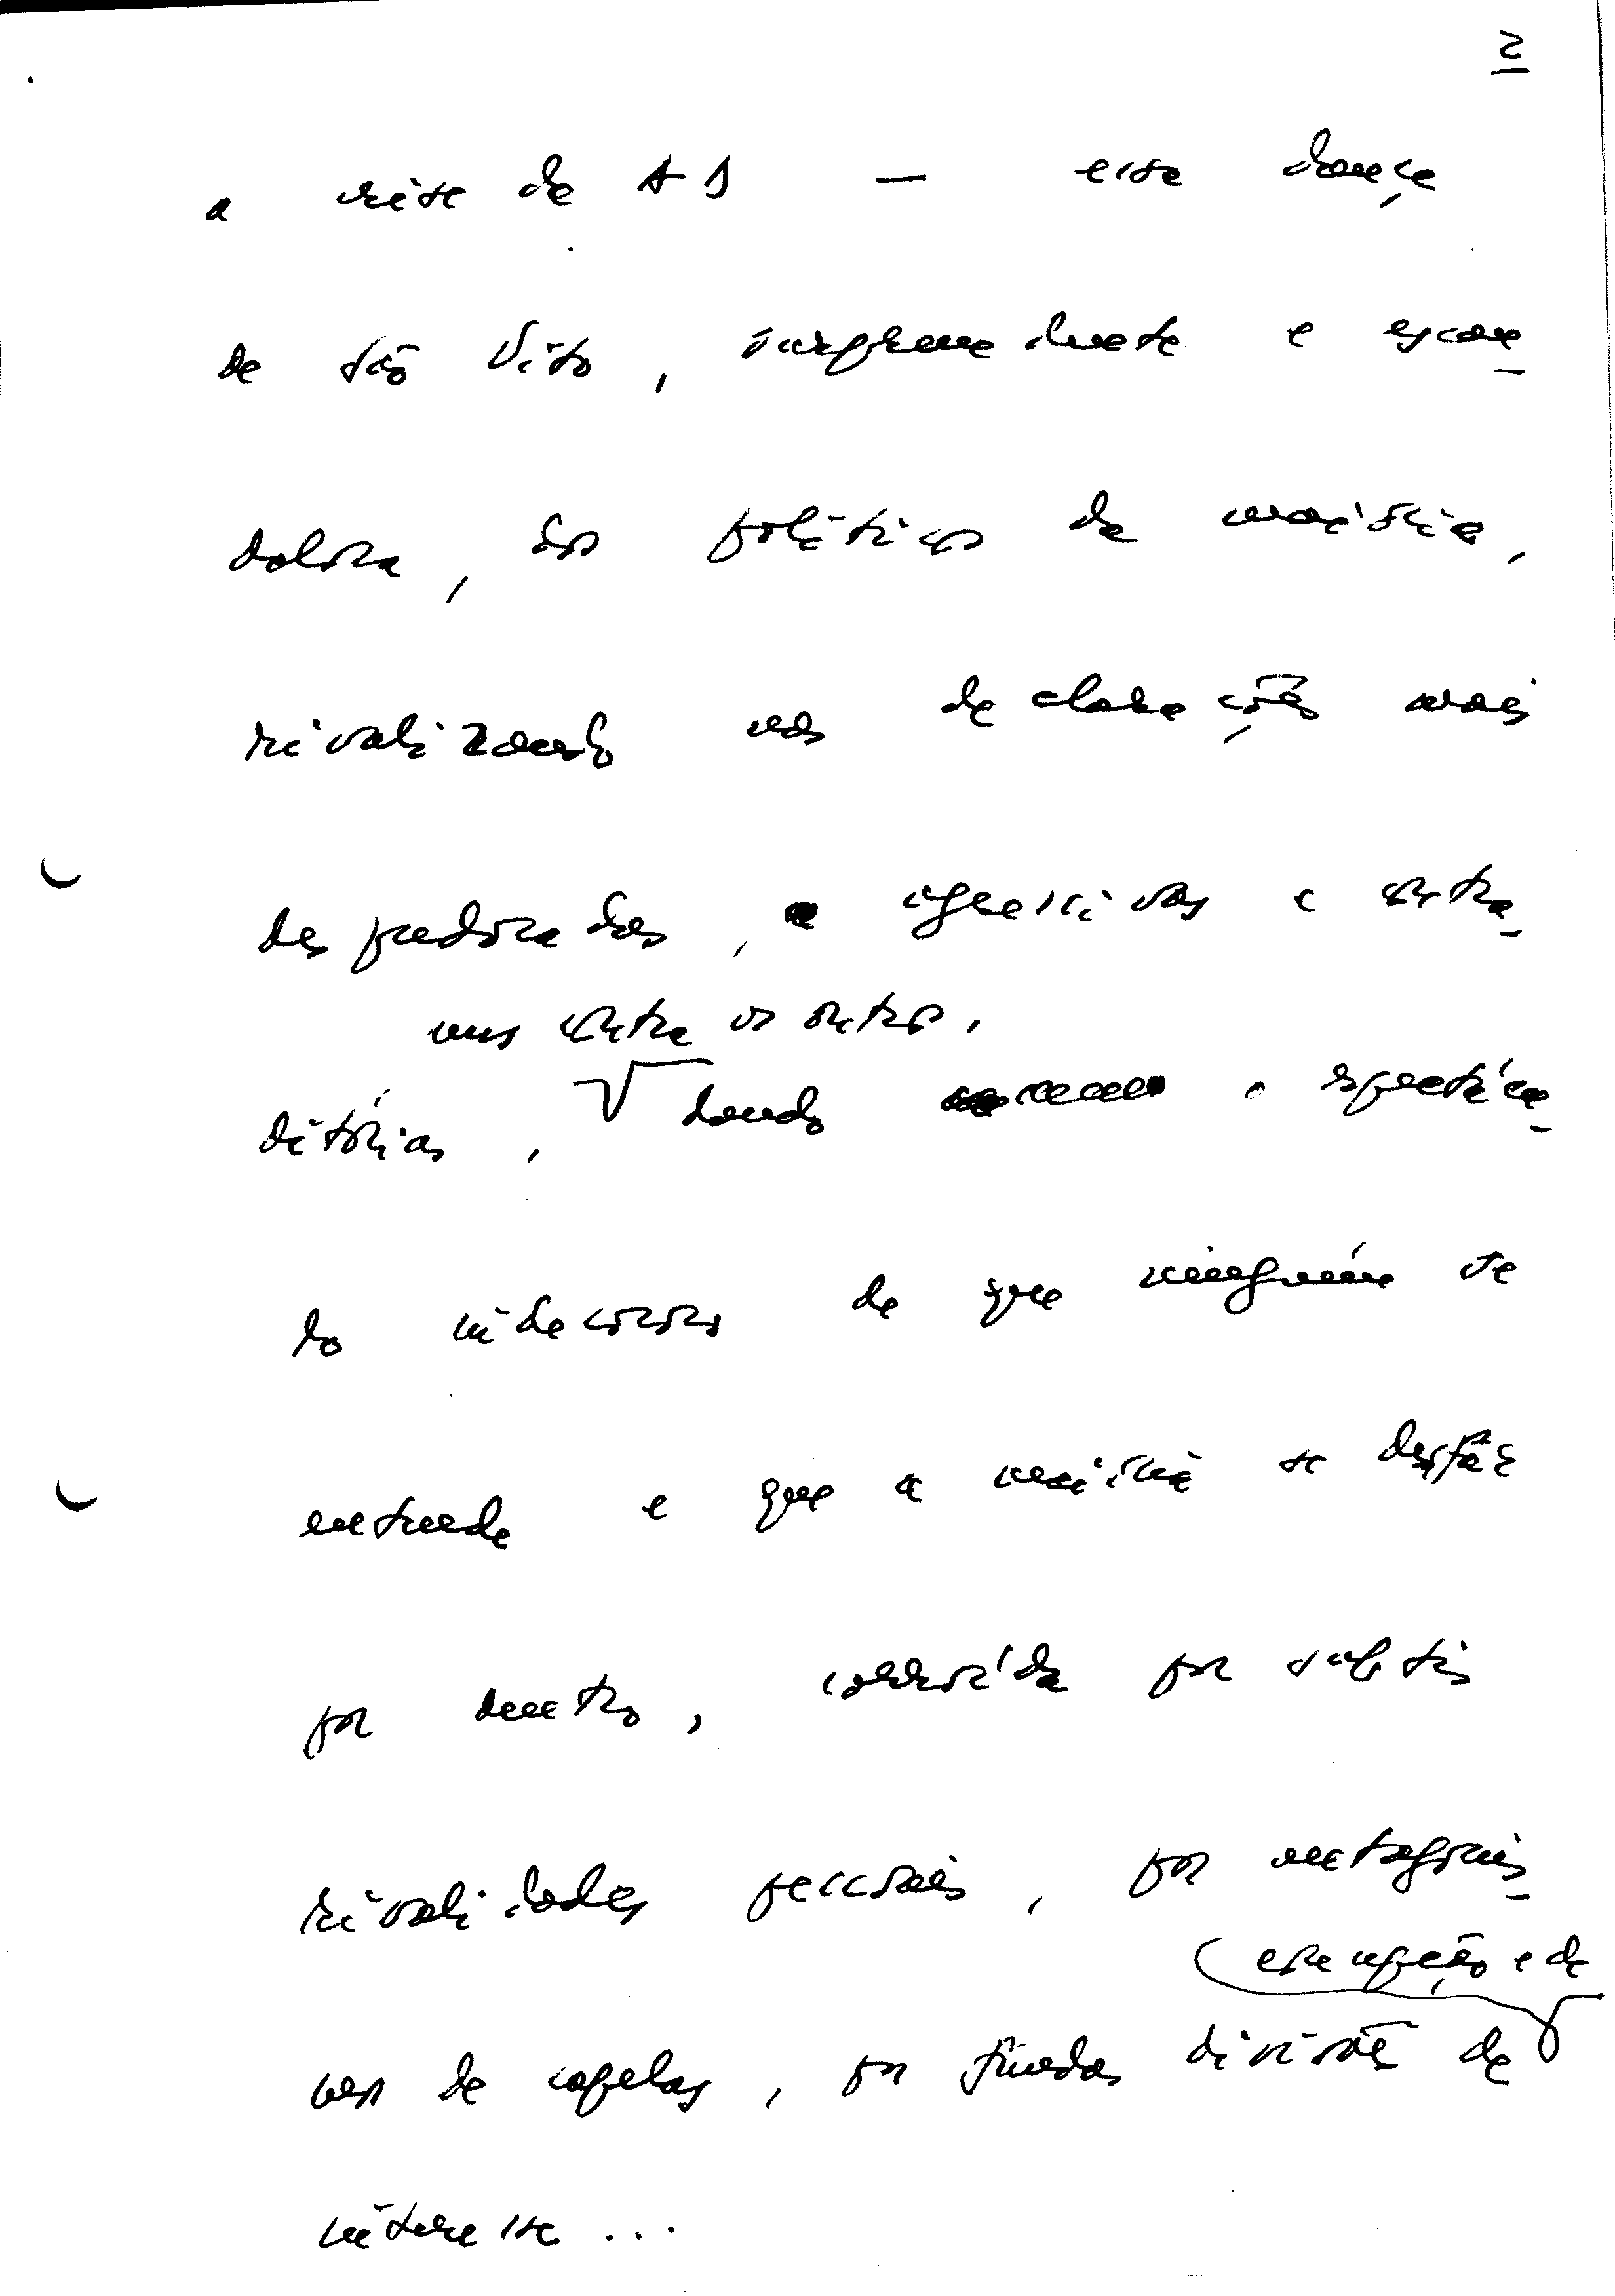 2
a crise da AD — essa dança
de São Vito, surpreendente e escan-
dalosa, dos políticos da maioria,
rivalizando nas declarações mais
despudoradas, agressivas e contra-
uns contra os outros,
ditórias, dando o espectácu-
lo indecoroso de que ninguém se
entende e que a maioria se desfaz
por dentro, corroída por subtis
rivalidades pessoais, por antagonis-
concepção e de
mos de capelas, por fundas divisões de
interesse...